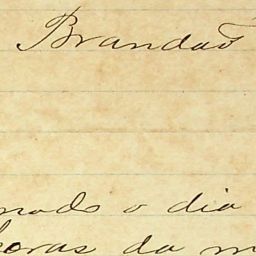 Brandaõ
nado o dia
horas da m